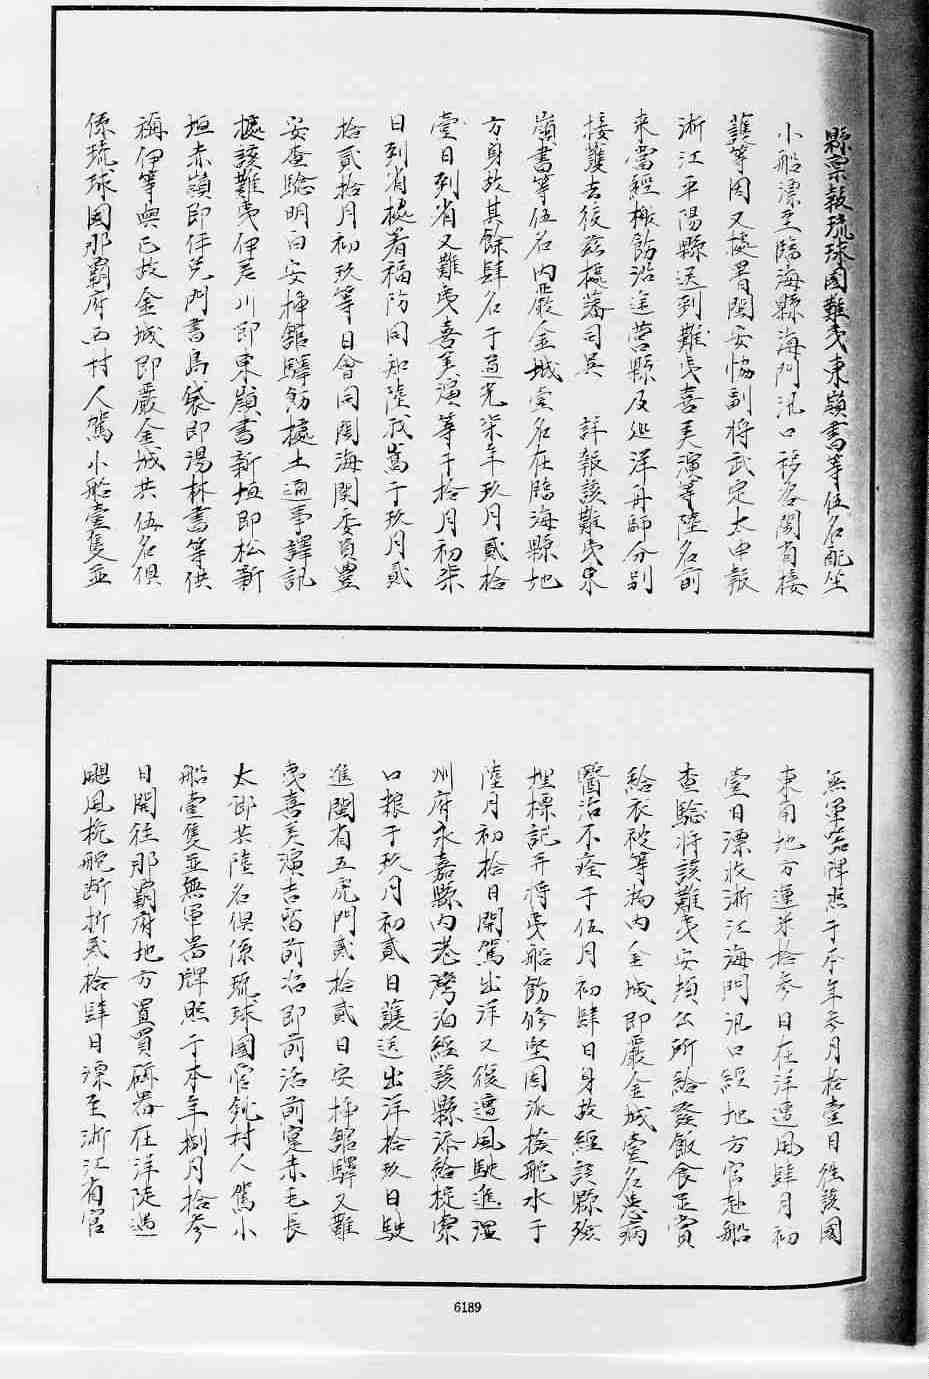 縣稟報琉球國難夷東嶺書等伍名配坐
小船漂至臨海縣海門汛口移咨閩省接
護等因又據署閩安協副將武定太申報
浙江平陽縣送到難夷喜美演等陸名前
來當經檄飭沿途營縣及巡洋舟師分別
接護去後茲據藩司吳 詳報該難夷東
嶺書等伍名內嚴金城壹名在臨海縣地
方身故其餘肆名于道光柒年玖月貳拾
壹日到省又難夷喜美演等于拾月初柒
日到省據署福防同知陸我嵩于玖月貳
拾貳拾月初玖等日會同閩海關委員豐
安查驗明白安揷館驛飭據土通事譯訊
據該難夷伊差川即東嶺書新垣即松新
垣赤嶺即伴兒門書島袋即湯林書等供
稱伊等與已故金城即嚴金城共伍名俱
係琉球國那霸府西村人駕小船壹隻並
無軍器牌照于本年叁月拾壹日徃該國
東角地方運米拾參日在洋遭風肆月初
壹日漂收浙江海門汛口經地方官赴船
查驗將該難夷安頓公所給發飯食正賞
給衣被等物內金城即嚴金城壹名患病
醫治不痊于伍月初肆日身故經該縣殮
埋標記并將夷船飭修堅固派撥舵水于
陸月初拾日開駕出洋又復遭風駛進溫
州府永嘉縣內港灣泊經該縣添給椗索
口粮于玖月初貳日護送出洋拾玖日駛
進閩省五虎門貳拾貳日安揷館驛又難
夷喜美演吉留前治即前活前寔未毛長
太郎共陸名俱係琉球國宮鈍村人駕小
船壹隻並無軍器牌照于本年捌月拾參
日開徃那霸府地方置買磁器在洋陡遇
颶風桅舵斷折貳拾肆日漂至浙江省官
6189